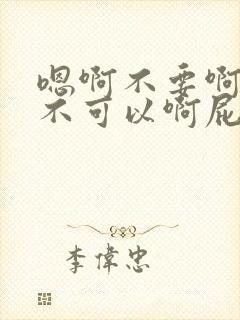 嗯啊不要啊
不可以啊屁
李偉忠